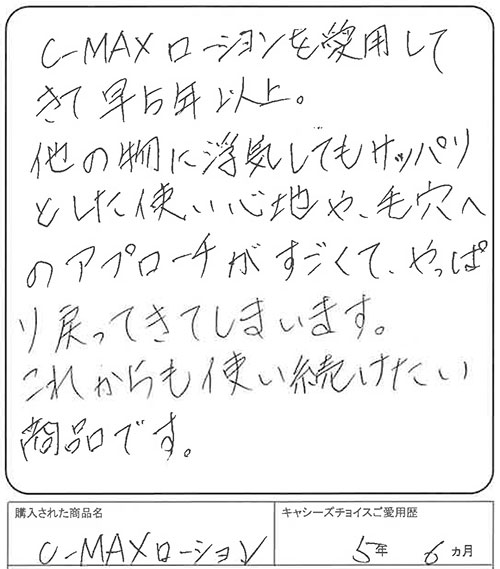 C-MAXローションを愛用して
きて早5年以上。
他の物に浮気してもサッパリ
とした使い心地や、毛穴へ
のアプローチがすごくて、やっぱ
り戻ってきてしまいます。
これからも使い続けたい
商品です。
購入された商品名
キャシーズチョイスご愛用歴
C-MAXローション
5年 6ヵ月